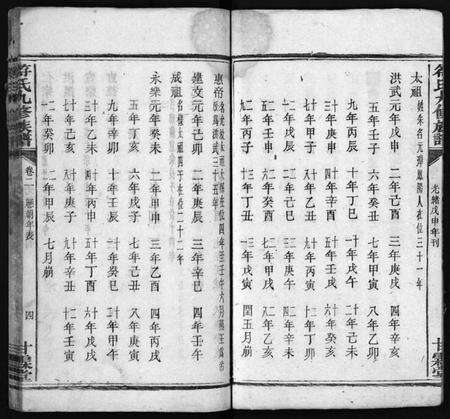 符氏九修族譜
光緒戊申年刊
甘霖堂
太祖 姓朱名元璋鳳陽人在位三十一年
洪武元年戊申 二年己酉 三年庚戌 四年辛亥
五年壬子 六年癸丑 七年甲寅 八年乙卯
九年丙辰 十年丁巳 十一年戊午 十二年己未
十三年庚申 十四年辛酉 十五年壬戌 十六年癸亥
十七年甲子 十八年乙丑 十九年丙寅 二十年丁卯
廿一年戊辰 廿二年己巳 廿三年庚午 廿四年辛未
廿五年壬申 廿六年癸酉 廿七年甲戌 廿八年乙亥
廿九年丙子 三十年丁丑 卅一年戊寅 閏五月崩
惠帝 在位四年至壬午六月燕王篡位
為洪武三十五年
建文元年己卯 二年庚辰 三年辛巳 四年壬午
成祖 名棣太祖四子在位二十二年
永樂元年癸未 二年甲申 三年乙酉 四年丙戌
五年丁亥 六年戊子 七年己丑 八年庚寅
九年辛卯 十年壬辰 十一年癸巳 十二年甲午
十三年乙未 十四年丙申 十五年丁酉 十六年戊戌
十七年己亥 十八年庚子 十九年辛丑 二十年壬寅
廿一年癸卯 廿二年甲辰 七月崩
符氏九修族譜
卷二 歷朝年表
四
甘霖堂